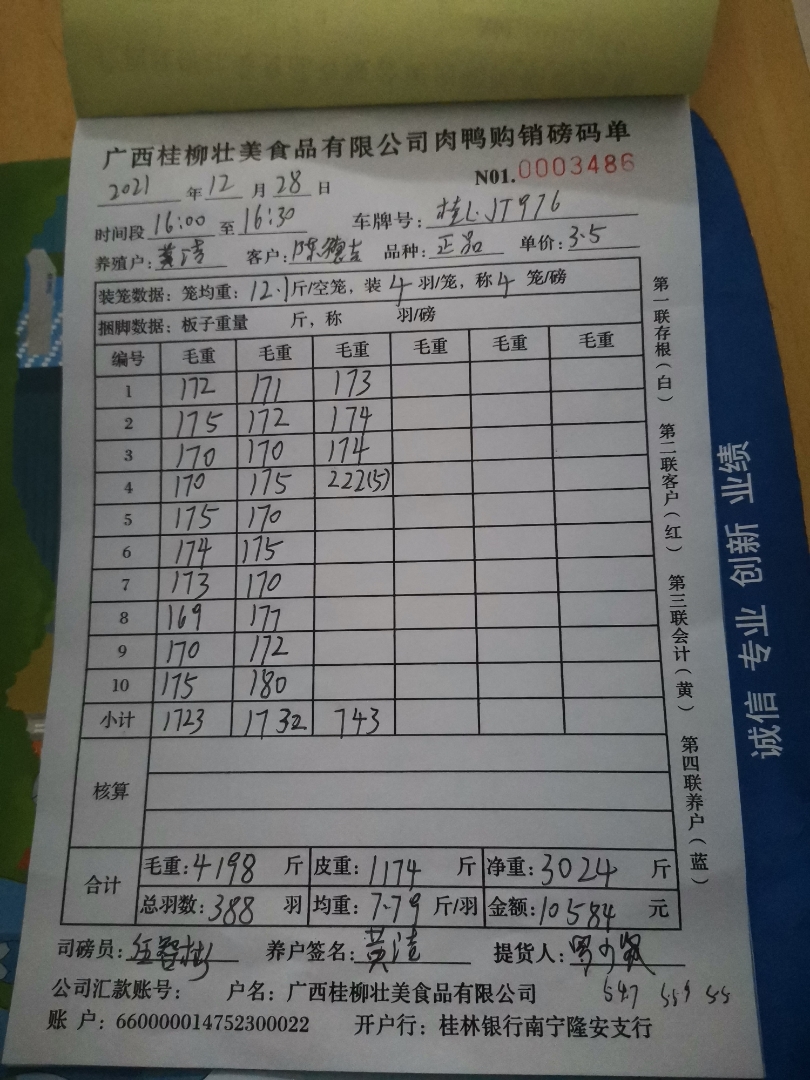 广西桂柳壮美食品有限公司肉鸭购销磅码单
N01.0003486
2021 年 12 月 28 日
时间段 16:00 至 16:30 车牌号: 桂L JT976
养殖户: 黄清 客户: 陈德吉 品种: 正品 单价: 3.5
装笼数据: 笼均重: 12.1 斤/空笼, 装 4 羽/笼, 称 4 笼/磅
捆脚数据: 板子重量 斤, 称 羽/磅
编号 毛重 毛重 毛重 毛重 毛重 毛重
1 172 171 173
2 175 172 174
3 170 170 174
4 170 175 222(5)
5 175 170
6 174 175
7 173 170
8 169 177
9 170 172
10 175 180
小计 1723 1732 743
核算
合计 毛重: 4198 斤 皮重: 1174 斤 净重: 3024 斤
总羽数: 388 羽 均重: 7.79 斤/羽 金额: 10584 元
司磅员: 养户签名: 黄清 提货人:
公司汇款账号: 户名: 广西桂柳壮美食品有限公司
账 户: 660000014752300022 开户行: 桂林银行南宁隆安支行
第一联存根(白) 第二联客户(红) 第三联会计(黄) 第四联养户(蓝)
诚信 专业 创新 业绩